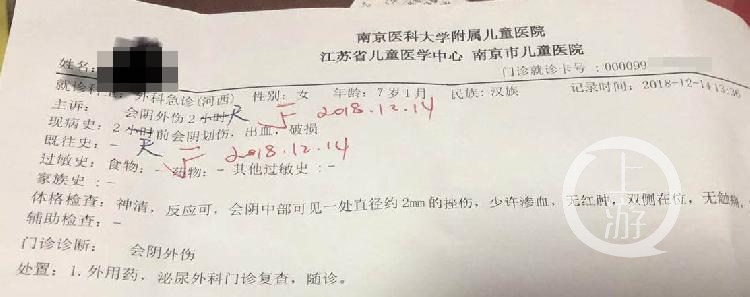 南京医科大学附属儿童医院
江苏省儿童医学中心 南京市儿童医院
姓名:
门诊就诊卡号 :000099
就诊科 外科急诊(河西) 性别: 女 年龄: 7岁1月 民族: 汉族 记录时间: 2018-12-14 13:36
主诉: 会阴外伤2小时天 2018.12.14
现病史: 2小时前会阴划伤, 出血, 破损
天 2018.12.14
既往史: -
过敏史: 食物: - 药物: - 其他过敏史: -
家族史 : -
体格检查: 神清, 反应可, 会阴中部可见一处直径约2mm的挫伤, 少许渗血, 无红肿, 双侧在位, 无触痛,
辅助检查: -
门诊诊断: 会阴外伤
处置: 1. 外用药, 泌尿外科门诊复查, 随诊。
上游